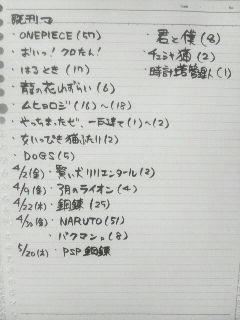 既刊→
・ONEPIECE(57)
・おいっ!クロたん!
・はるとき(17)
・龍の花わずらい(6)
・ムヒョロジ(16)〜(18)
・やっちまったぜ 一戸建て(1)〜(2)
・女いっぴき猫ふたり(2)
・DOGS(5)
4/2(金)・賢い犬リリエンタール(2)
4/9(金)・3月のライオン(4)
4/22(木)・鋼錬(25)
4/30(金)・NARUTO(51)
・バクマン。(8)
5/20(木)・PSP鋼錬
・君と僕(8)
・チュウ猫(2)
・時計塔管理人(1)